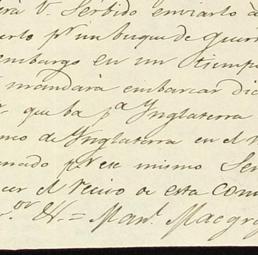 V. Serbido enviarlo á
pr un buque de Guerr
embargo en un tiempo
mandará embarcar dic
que ba pa Ynglaterra
nco de Ynglaterra en el
nado pr ese mismo Ser
el recivo de esta Com
Manl. Macgr